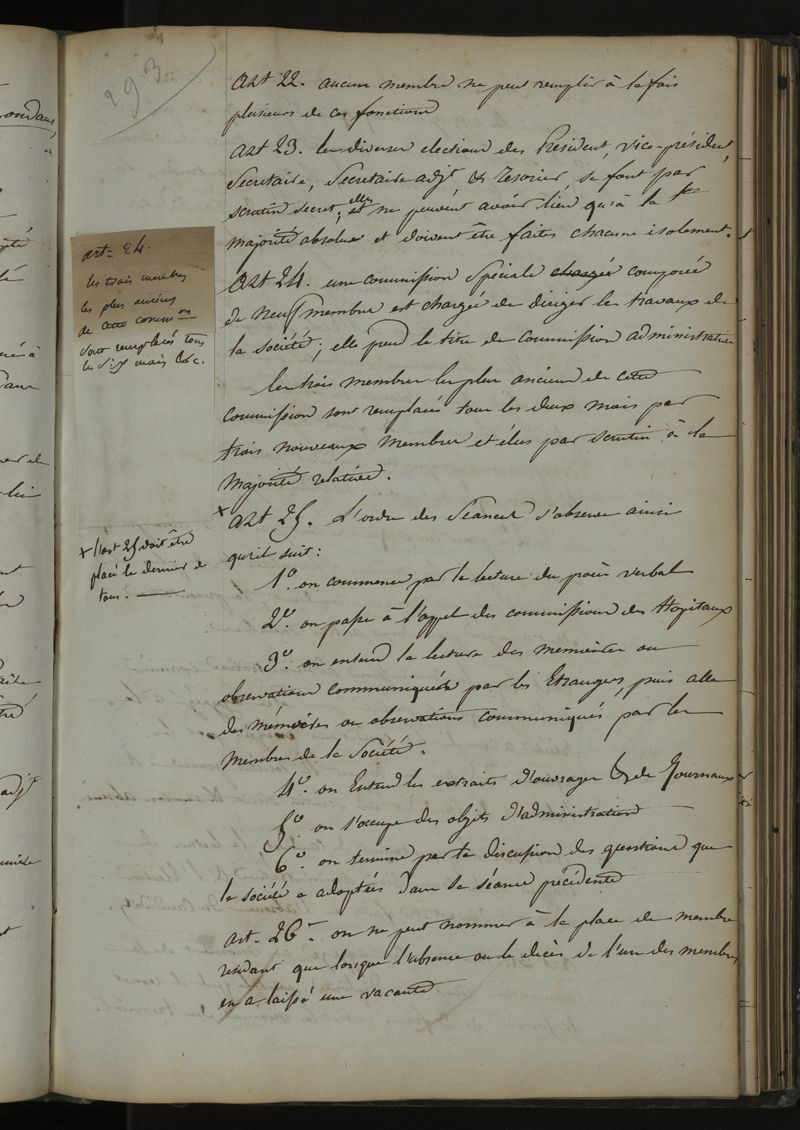 293
art 22. aucun membre ne peut remplir à la fois
plusieurs de ces fonctions
art 23. les diverses elections des Président, vice-président,
Secretaire, Secretaire adjt & Tresorier, se font par
scrutin secret; elles ne peuvent avoir lieu qu'à la
majorité absolue et doivent être faites chacune isolement.
art 24. une commission speciale chargée composée
de neuf membres est chargée de diriger les travaux de
la société; elle prend le titre de commission administrative
les trois membres les plus anciens de cette
commission sont remplacés tous les deux mois par
trois nouveaux membres et élus par scrutin à la
majorité relative.
art = 24.
les trois membres
les plus anciens
de cette common
sont remplacés tous
les mois &c.
+ art 25. L'ordre des Séances s'observe ainsi
qu'il suit:
+ l'art 25 doit être
placé le dernier de
tous.
1o. on commence par la lecture du procès verbal
2o. on passe à l'appel des commissions des Hopitaux
3o. on entend la lecture des memoires ou
observations communiqués par les Etrangers, puis celle
des mémoires ou observations communiqués par les
membres de la Société.
4o. on Entend les extraits d'ouvrages & de Journaux
5o. on s'occupe des objets d'administration
6o. on termine par la discussion des questions que
la société a adoptées dans sa séance précédente
art - 26 - on ne peut nommer à la place de membre
residant que lorsque l'absence ou le decès de l'un des membres
en a laissé une vacante